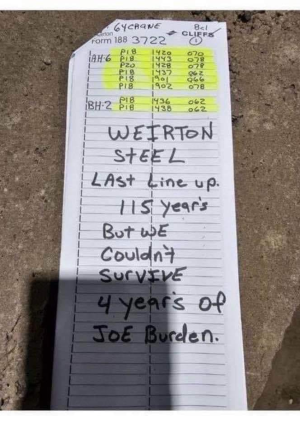 64" CRANE 8C1
CLIFFS
Form 188 3722 1
P18 1420 070
AH-6 P18 1443 078
P20 1428 078
P18 1437 062
P18 1901 066
P18 1902 078
P18 1436 062
BH-2 P18 1438 062
WEIRTON
STEEL
LAST Line up.
115 years
But WE
Couldn't
SurVIVE
4 years of
JOE Burden.